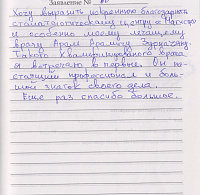 Заявление №
Хочу выразить искреннюю благодарность
стоматологическому центру «
и особенно моему лечащему
врачу Араму Арамичу
Такого квалифицированного врача
я встречаю впервые. Вы на-
стоящий профессионал и боль-
шой знаток своего дела.
Еще раз спасибо большое.